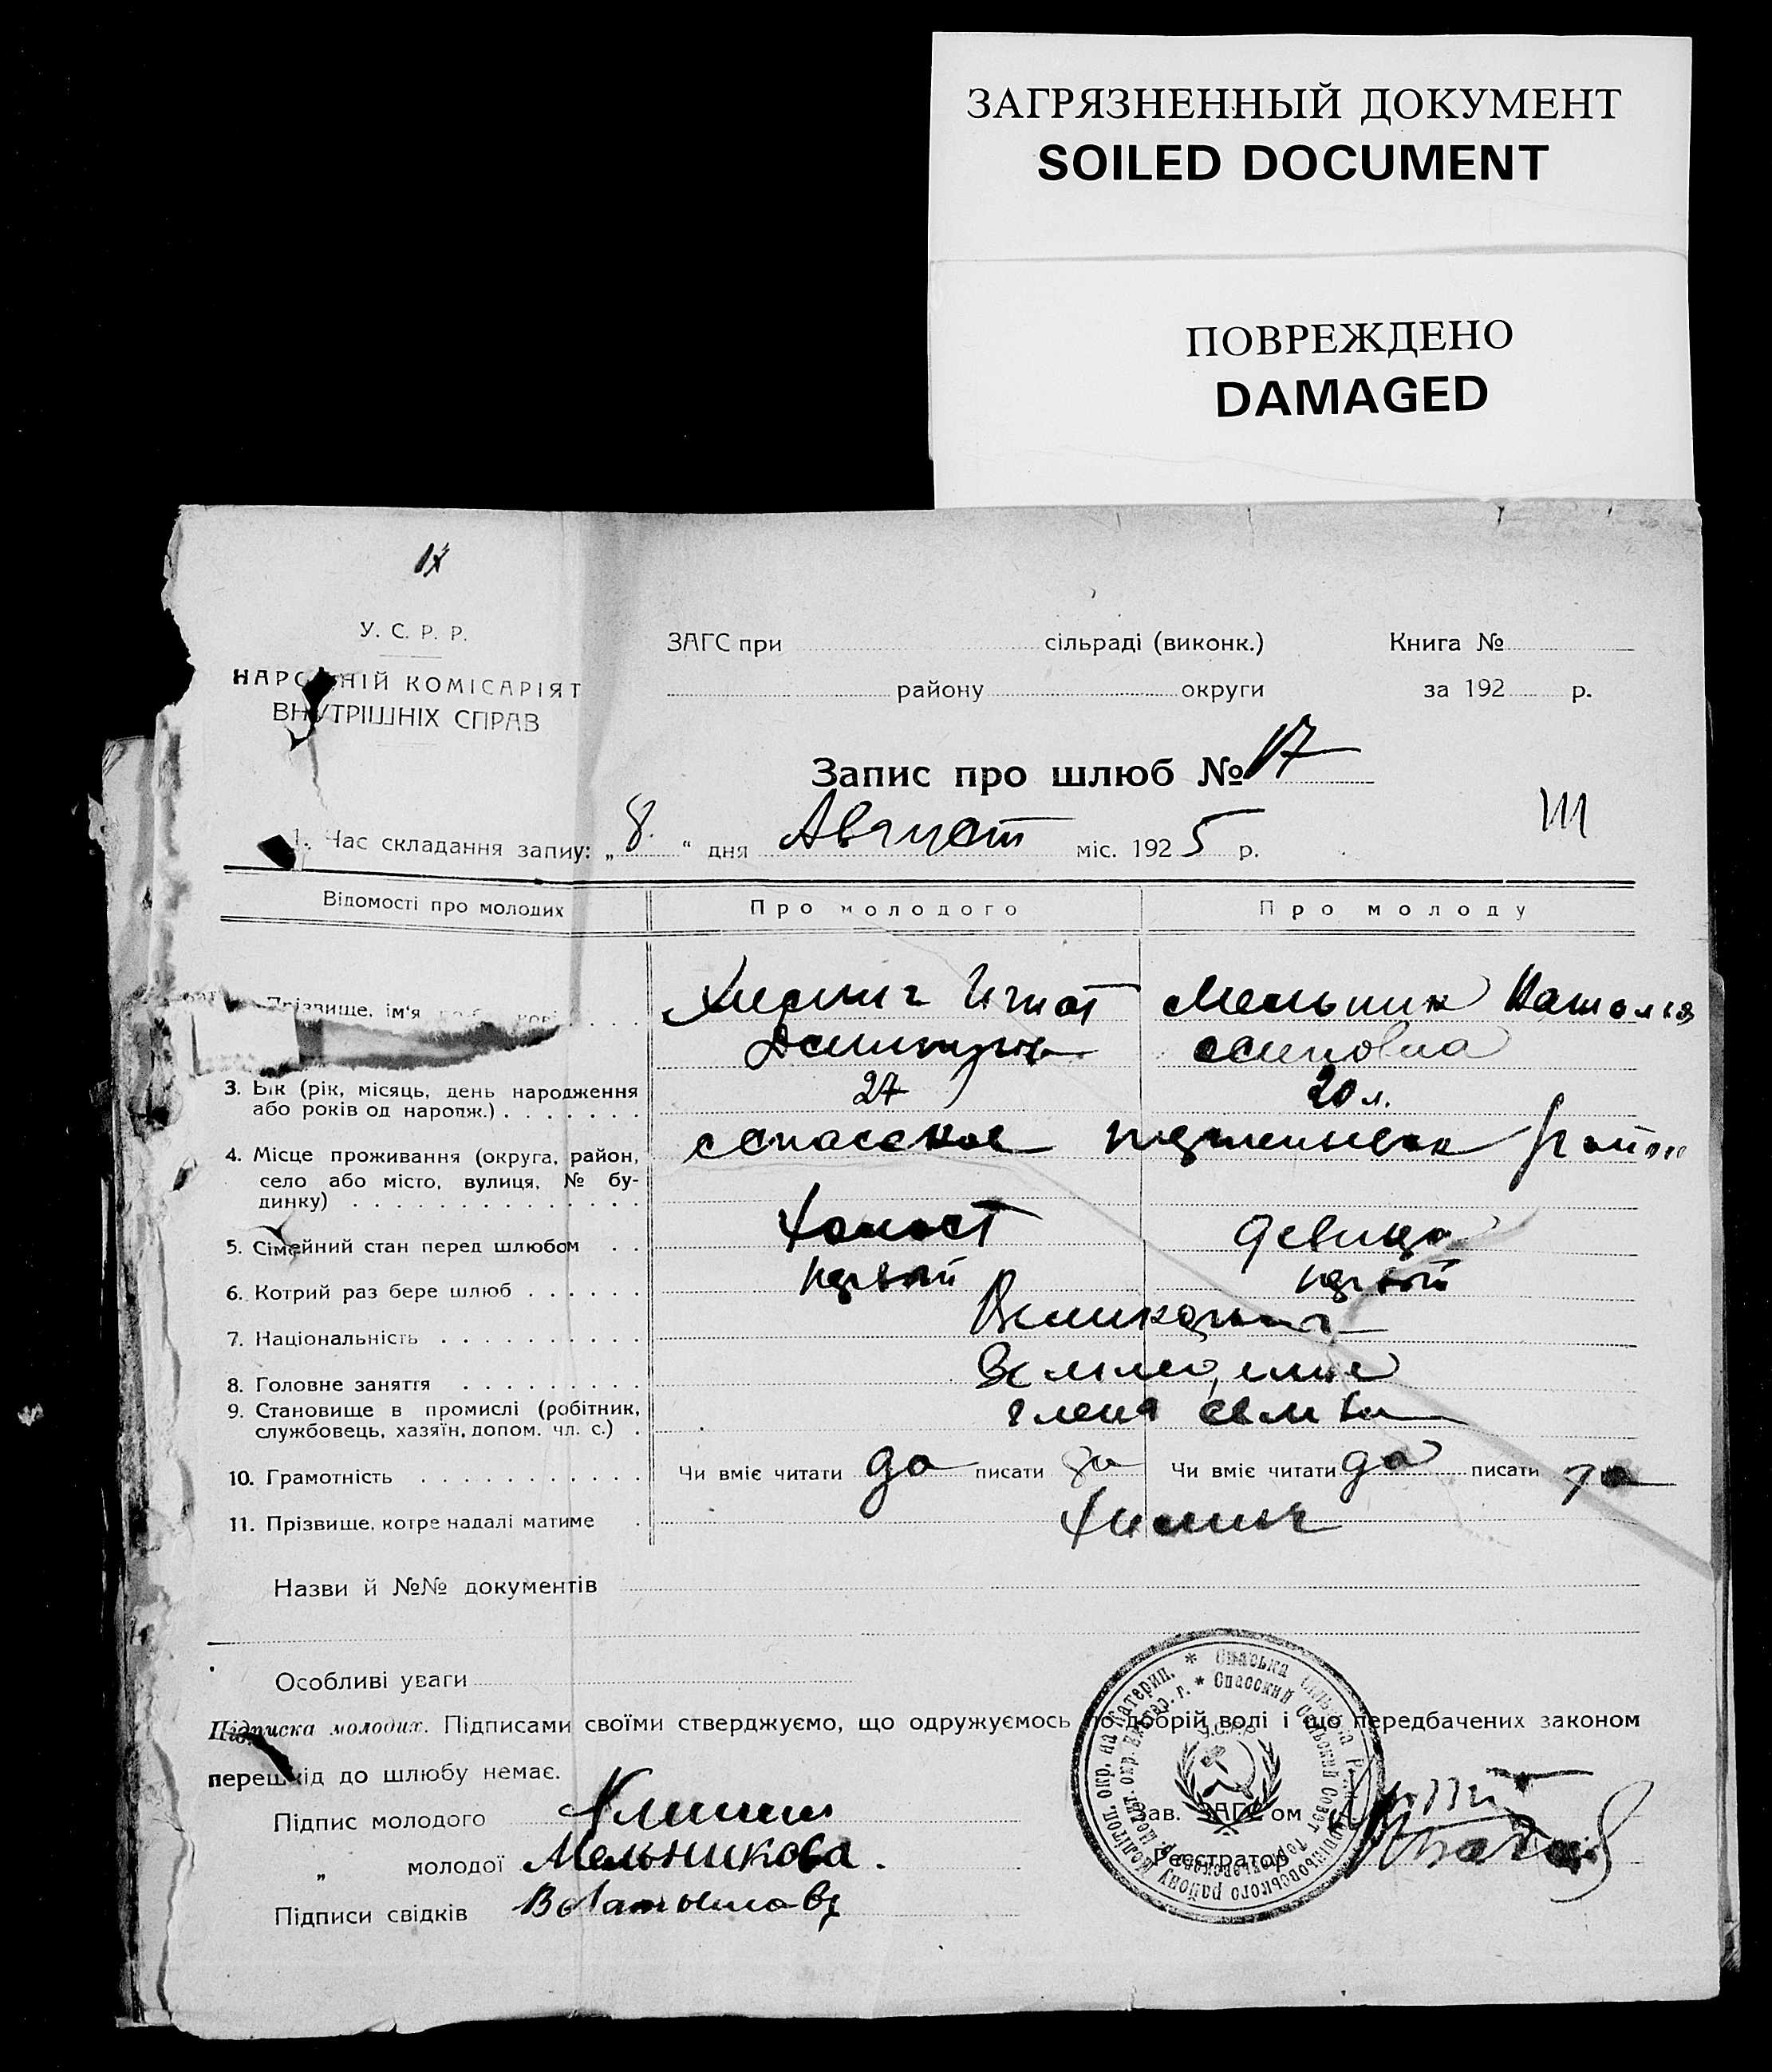 ЗАГРЯЗНЕННЫЙ ДОКУМЕНТ
SOILED DOCUMENT
ПОВРЕЖДЕНО
DAMAGED
17
У. С. Р. Р.
НАРОДНІЙ КОМІСАРІЯТ
ВНУТРІШНІХ СПРАВ
ЗАГС при сільраді (виконк.) Книга №
району округи за 192 р.
Запис про шлюб № 17
1. Час складання запиу: „8.“ дня Август міс. 1925 р.
Відомості про молодих Про молодого Про молоду
Прізвище, ім'я Игнат Мельник Наталия
Осиповна
3. Вік (рік, місяць, день народження 27 20 л.
або років од народж.)
4. Місце проживання (округа, район, Спасское район
село або місто, вулиця, № бу-
динку)
5. Сімейний стан перед шлюбом холост девица
6. Котрий раз бере шлюб первый первый
7. Національність
8. Головне заняття Земледелие
9. Становище в промислі (робітник, члены семьи
службовець, хазяїн, допом. чл. с.)
10. Грамотність Чи вміє читати да писати да Чи вміє читати да писати да
11. Прізвище, котре надалі матиме
Назви й №№ документів
Особливі уваги
Підписка молодих. Підписами своїми стверджуємо, що одружуємось по добрій волі і що передбачених законом
перешкід до шлюбу немає.
Підпис молодого Зав. ЗАГС'ом
„ молодої Мельникова. Реєстратор
Підписи свідків